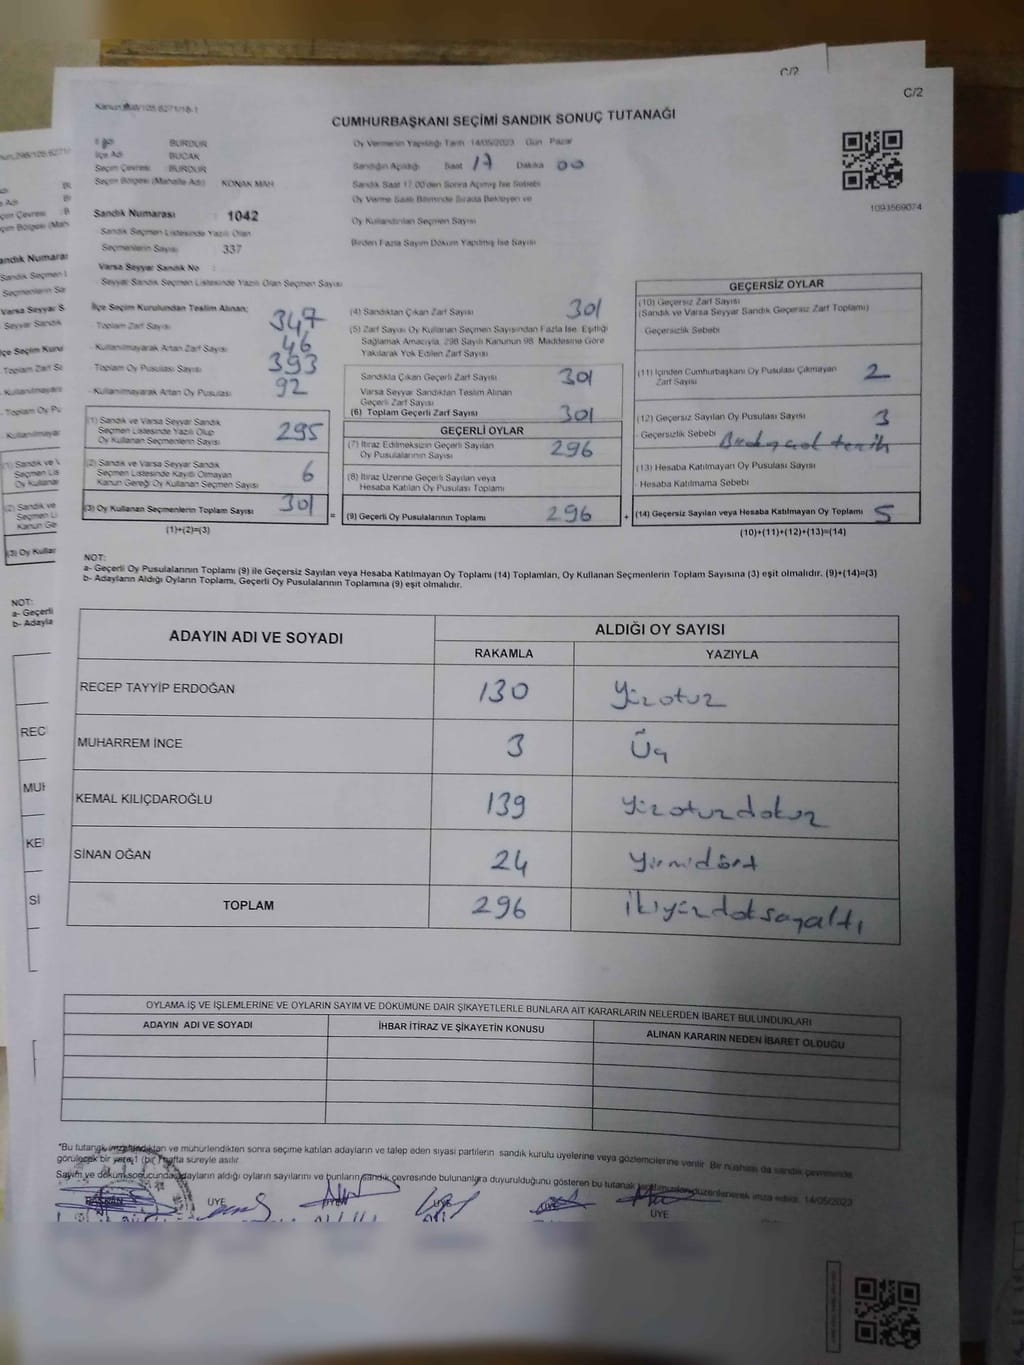 C/2
C/2
CUMHURBAŞKANI SEÇİMİ SANDIK SONUÇ TUTANAĞI
1093569074
BURDUR
İlçe Adı BUCAK
Seçim Çevresi BURDUR
Seçim Bölgesi (Mahalle Adı) KONAK MAH
Sandık Numarası : 1042
Sandık Seçmen Listesinde Yazılı Olan
Seçmenlerin Sayısı 337
Varsa Seyyar Sandık No :
Seyyar Sandık Seçmen Listesinde Yazılı Olan Seçmen Sayısı
Oy Vermenin Yapıldığı Tarih 14/05/2023 Gün Pazar
Sandığın Açıldığı Saat 17 Dakika 00
Sandık Saat 17.00'den Sonra Açılmış İse Sebebi
Oy Verme Saati Bitiminde Sırada Bekleyen ve
Oy Kullandırılan Seçmen Sayısı
Birden Fazla Sayım Döküm Yapılmış İse Sayısı
İlçe Seçim Kurulundan Teslim Alınan;
Toplam Zarf Sayısı 347
Kullanılmayarak Artan Zarf Sayısı 46
Toplam Oy Pusulası Sayısı 393
Kullanılmayarak Artan Oy Pusulası 92
(1) Sandık ve Varsa Seyyar Sandık
Seçmen Listesinde Yazılı Olup
Oy Kullanan Seçmenlerin Sayısı 295
(2) Sandık ve Varsa Seyyar Sandık
Seçmen Listesinde Kayıtlı Olmayan
Kanun Gereği Oy Kullanan Seçmen Sayısı 6
(3) Oy Kullanan Seçmenlerin Toplam Sayısı 301
(1)+(2)=(3)
(4) Sandıktan Çıkan Zarf Sayısı 301
(5) Zarf Sayısı Oy Kullanan Seçmen Sayısından Fazla İse, Eşitliği
Sağlamak Amacıyla, 298 Sayılı Kanunun 98. Maddesine Göre
Yakılarak Yok Edilen Zarf Sayısı
Sandıkta Çıkan Geçerli Zarf Sayısı 301
Varsa Seyyar Sandıktan Teslim Alınan
Geçerli Zarf Sayısı
(6) Toplam Geçerli Zarf Sayısı 301
GEÇERLİ OYLAR
(7) İtiraz Edilmeksizin Geçerli Sayılan
Oy Pusulalarının Sayısı 296
(8) İtiraz Üzerine Geçerli Sayılan veya
Hesaba Katılan Oy Pusulası Toplamı
= (9) Geçerli Oy Pusulalarının Toplamı 296
GEÇERSİZ OYLAR
(10) Geçersiz Zarf Sayısı
(Sandık ve Varsa Seyyar Sandık Geçersiz Zarf Toplamı)
Geçersizlik Sebebi
(11) İçinden Cumhurbaşkanı Oy Pusulası Çıkmayan
Zarf Sayısı 2
(12) Geçersiz Sayılan Oy Pusulası Sayısı 3
Geçersizlik Sebebi
(13) Hesaba Katılmayan Oy Pusulası Sayısı
Hesaba Katılmama Sebebi
+ (14) Geçersiz Sayılan veya Hesaba Katılmayan Oy Toplamı 5
(10)+(11)+(12)+(13)=(14)
NOT:
a- Geçerli Oy Pusulalarının Toplamı (9) ile Geçersiz Sayılan veya Hesaba Katılmayan Oy Toplamı (14) Toplamları, Oy Kullanan Seçmenlerin Toplam Sayısına (3) eşit olmalıdır. (9)+(14)=(3)
b- Adayların Aldığı Oyların Toplamı, Geçerli Oy Pusulalarının Toplamına (9) eşit olmalıdır.
ADAYIN ADI VE SOYADI ALDIĞI OY SAYISI
RAKAMLA YAZIYLA
RECEP TAYYİP ERDOĞAN 130 Yüzotuz
MUHARREM İNCE 3 Üç
KEMAL KILIÇDAROĞLU 139 Yüzotuzdokuz
SİNAN OĞAN 24 Yirmidört
TOPLAM 296 İkiyüzdoksanaltı
OYLAMA İŞ VE İŞLEMLERİNE VE OYLARIN SAYIM VE DÖKÜMÜNE DAİR ŞİKAYETLERLE BUNLARA AİT KARARLARIN NELERDEN İBARET BULUNDUKLARI
ADAYIN ADI VE SOYADI İHBAR İTİRAZ VE ŞİKAYETİN KONUSU ALINAN KARARIN NEDEN İBARET OLDUĞU
*Bu tutanak imzalandıktan ve mühürlendikten sonra seçime katılan adayların ve talep eden siyasi partilerin sandık kurulu üyelerine veya gözlemcilerine verilir. Bir nüshası da sandık çevresinde
görülecek bir yere 1 (bir) hafta süreyle asılır.
Sayım ve döküm sonucunda adayların aldığı oyların sayılarını ve bunların sandık çevresinde bulunanlara duyurulduğunu gösteren bu tutanak tarafımızdan düzenlenerek imza edildi. 14/05/2023
BAŞKAN ÜYE ÜYE ÜYE ÜYE
ÜYE